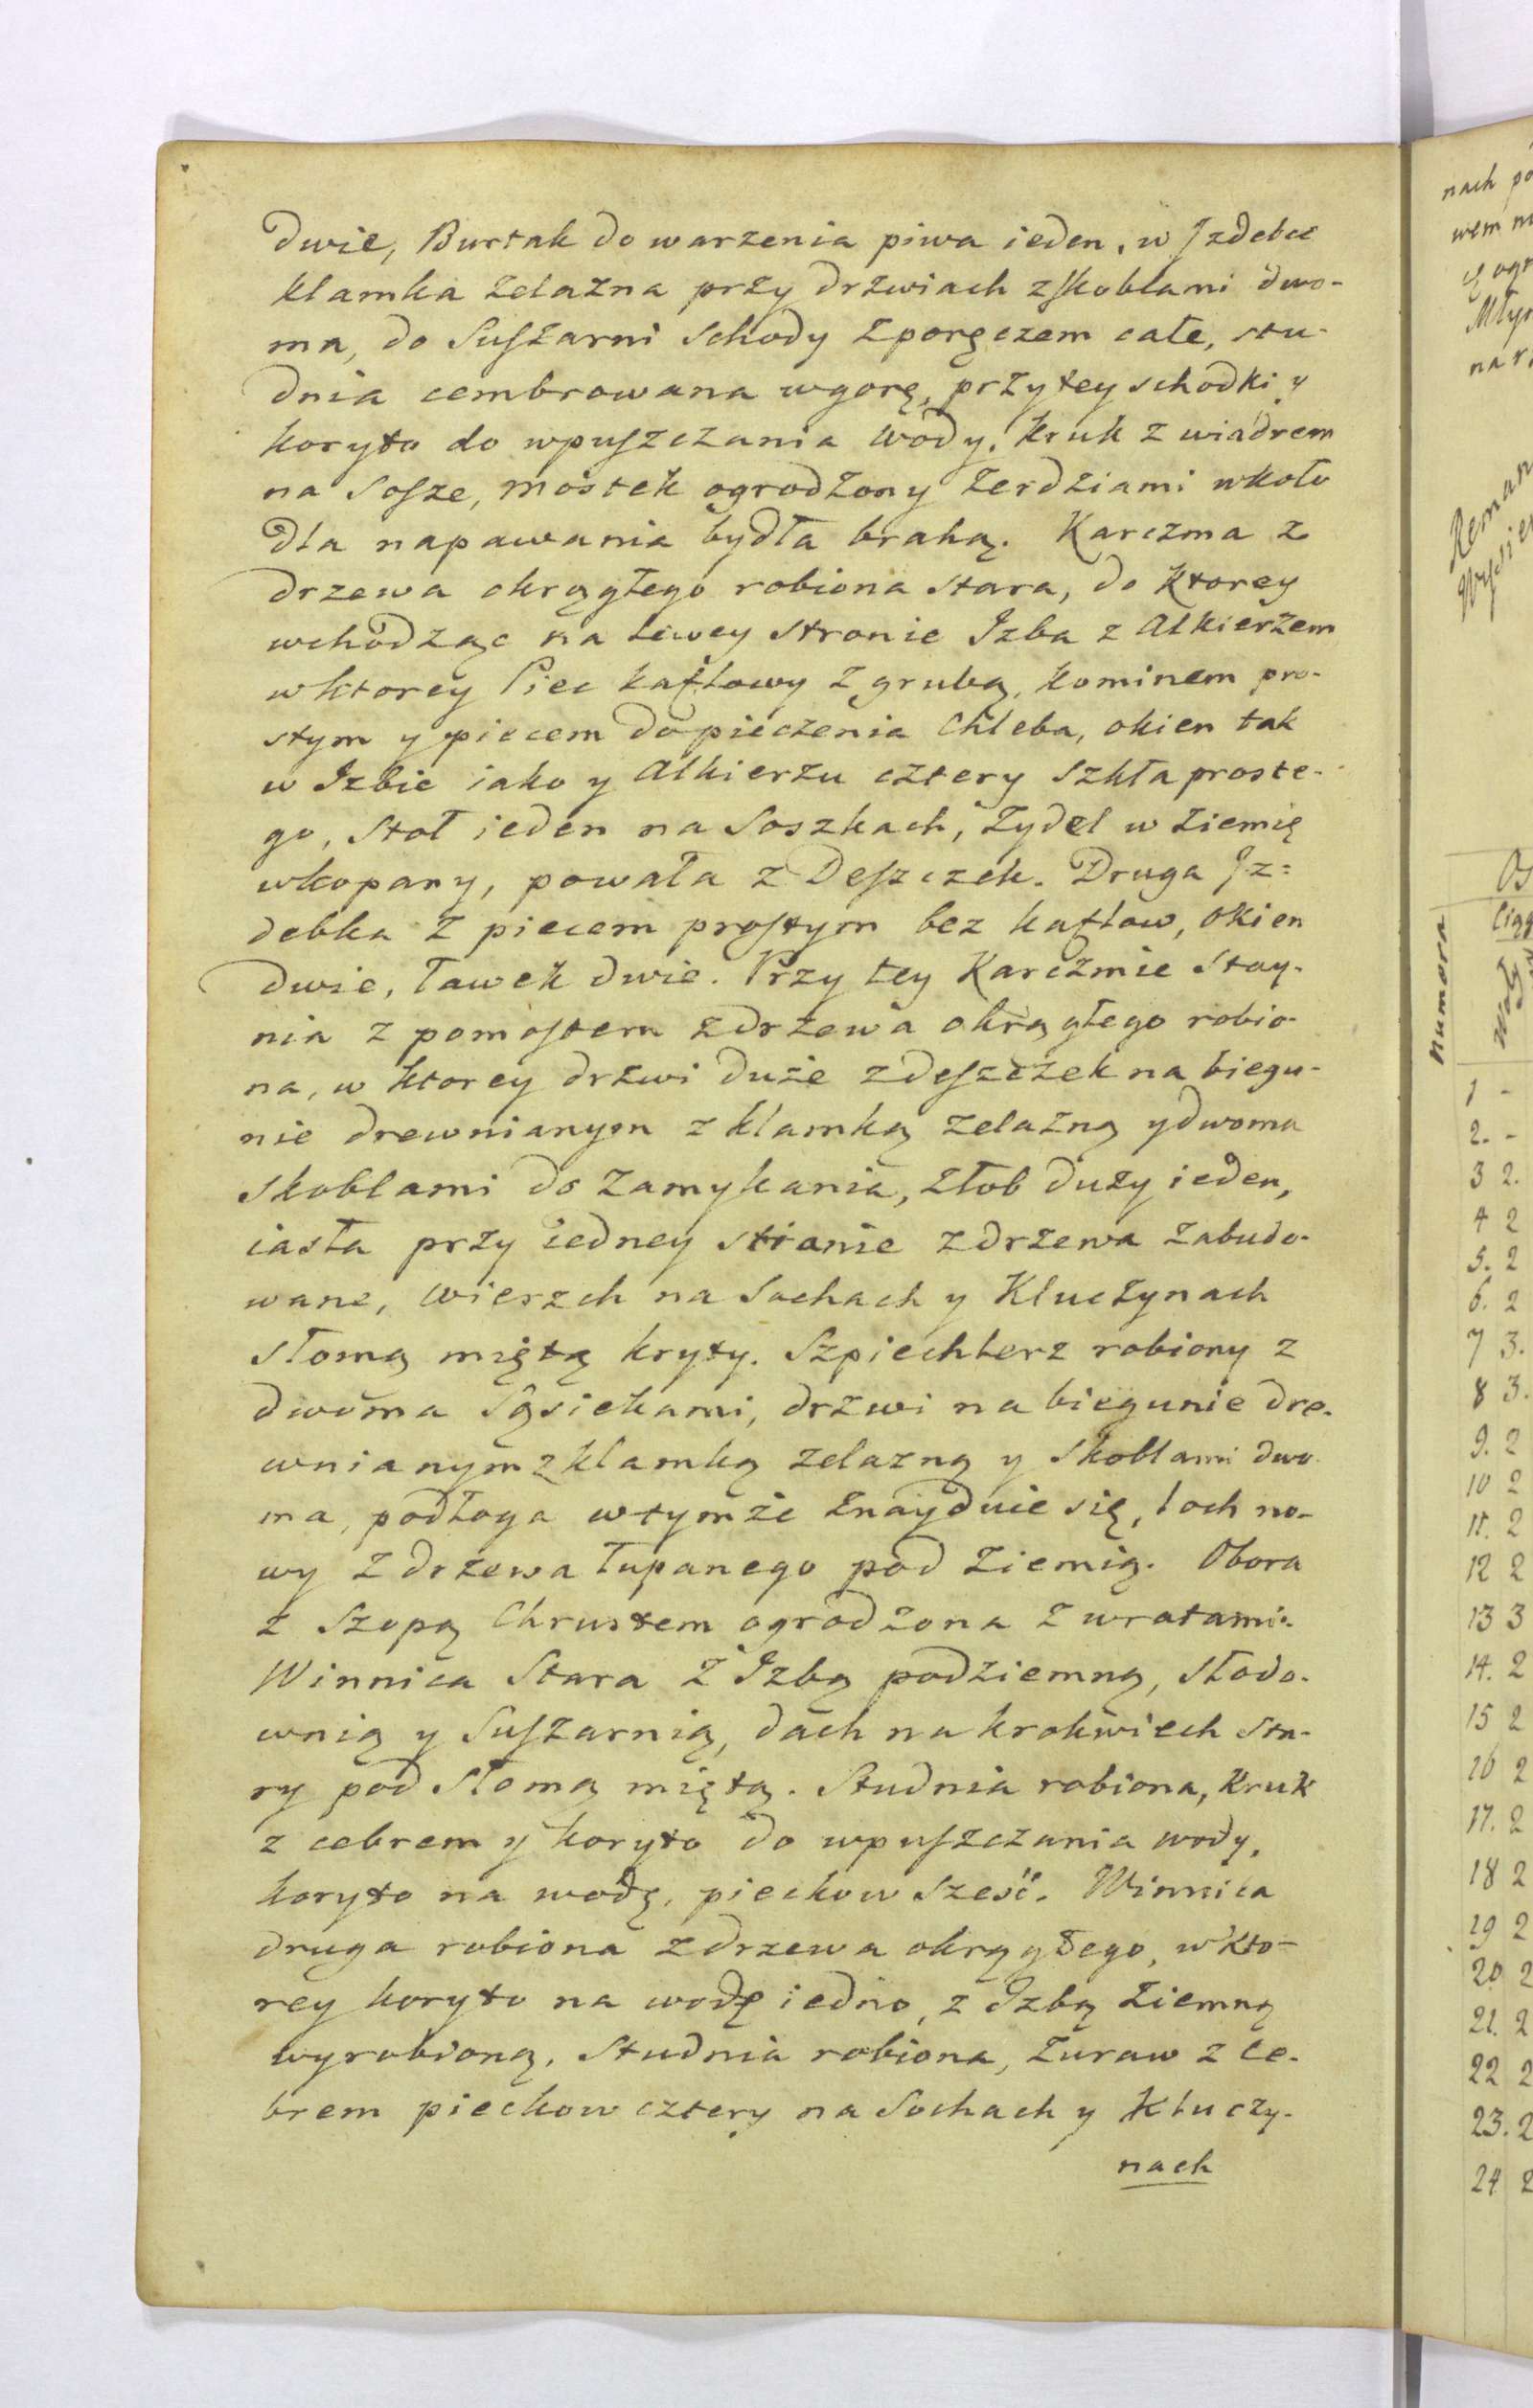 dwie, Burtak do warzenia piwa ieden, w Jzdebce
klamka żelazna przy drzwiach z skoblami dwo-
ma, do Suszarni Schody z poręczem całe, stu-
dnia cembrowana wgorę, przy tey schodki y
koryto do wpuszczania wody. Kruk z wiadrem
na Sosze, mostek ogrodzony żerdziami wkoło
dla napawania bydła brahą. Karczma z
drzewa okrągłego robiona stara, do ktorey
wchodząc na lewey stronie Izba z Alkierzem
w ktorey Piec kaflowy z grubą, kominem pro-
stym y piecem do pieczenia Chleba, okien tak
w Izbie iako y Alkierzu cztery Szkła proste-
go, Stoł ieden na Soszkach, Zydel w ziemię
wkopany, powała z Deszczek. Druga Jz=
debka z piecem prostym bez kaflow, okien
dwie, ławek dwie. Przy tey Karczmie Stay-
nia z pomostem z drzewa okrągłego robio-
na, w ktorey drzwi duże z deszczek na biegu-
nie drewnianym z klamką żelazną y dwoma
skoblami do zamykania, żłob duży ieden,
iasła przy iedney stianie z drzewa zabudo-
wane, wierzch na Sochach y Kluczynach
słomą miętą kryty. Szpiechlerz robiony z
dwoma Sąsiekami, drzwi na biegunie dre-
wnianym z klamką żelazną y Skoblami dwo-
ma, podłoga w tymże znayduie się, loch no-
wy z drzewa łupanego pod ziemią. Obora
z Szopą Chrustem ogrodzona z wratami.
Winnica Stara z Izbą podziemną, słodo-
wnią y Suszarnią, dach na krokwiech sta-
ry pod słomą miętą. Studnia robiona, Kruk
z cebrem y koryto do wpuszczania wody,
koryto na wodę, pieckow sześć. Winnica
druga robiona z drzewa okrągłego, w kto-
rey koryto na wodę iedno, z Izbą ziemną
wyrobioną, studnia robiona, żuraw z ce-
brem pieckow cztery na Sochach y Kluczy-
nach
nach
wem
Młyn
Reman
numera
1 -
2. -
3 2.
4 2
5. 2
6. 2
7 3.
8 3.
9. 2
10 2
11. 2
12 2
13 3
14. 2
15 2
16 2
17. 2
18 2
19 2
20 2
21. 2
22 2
23. 2
24 2